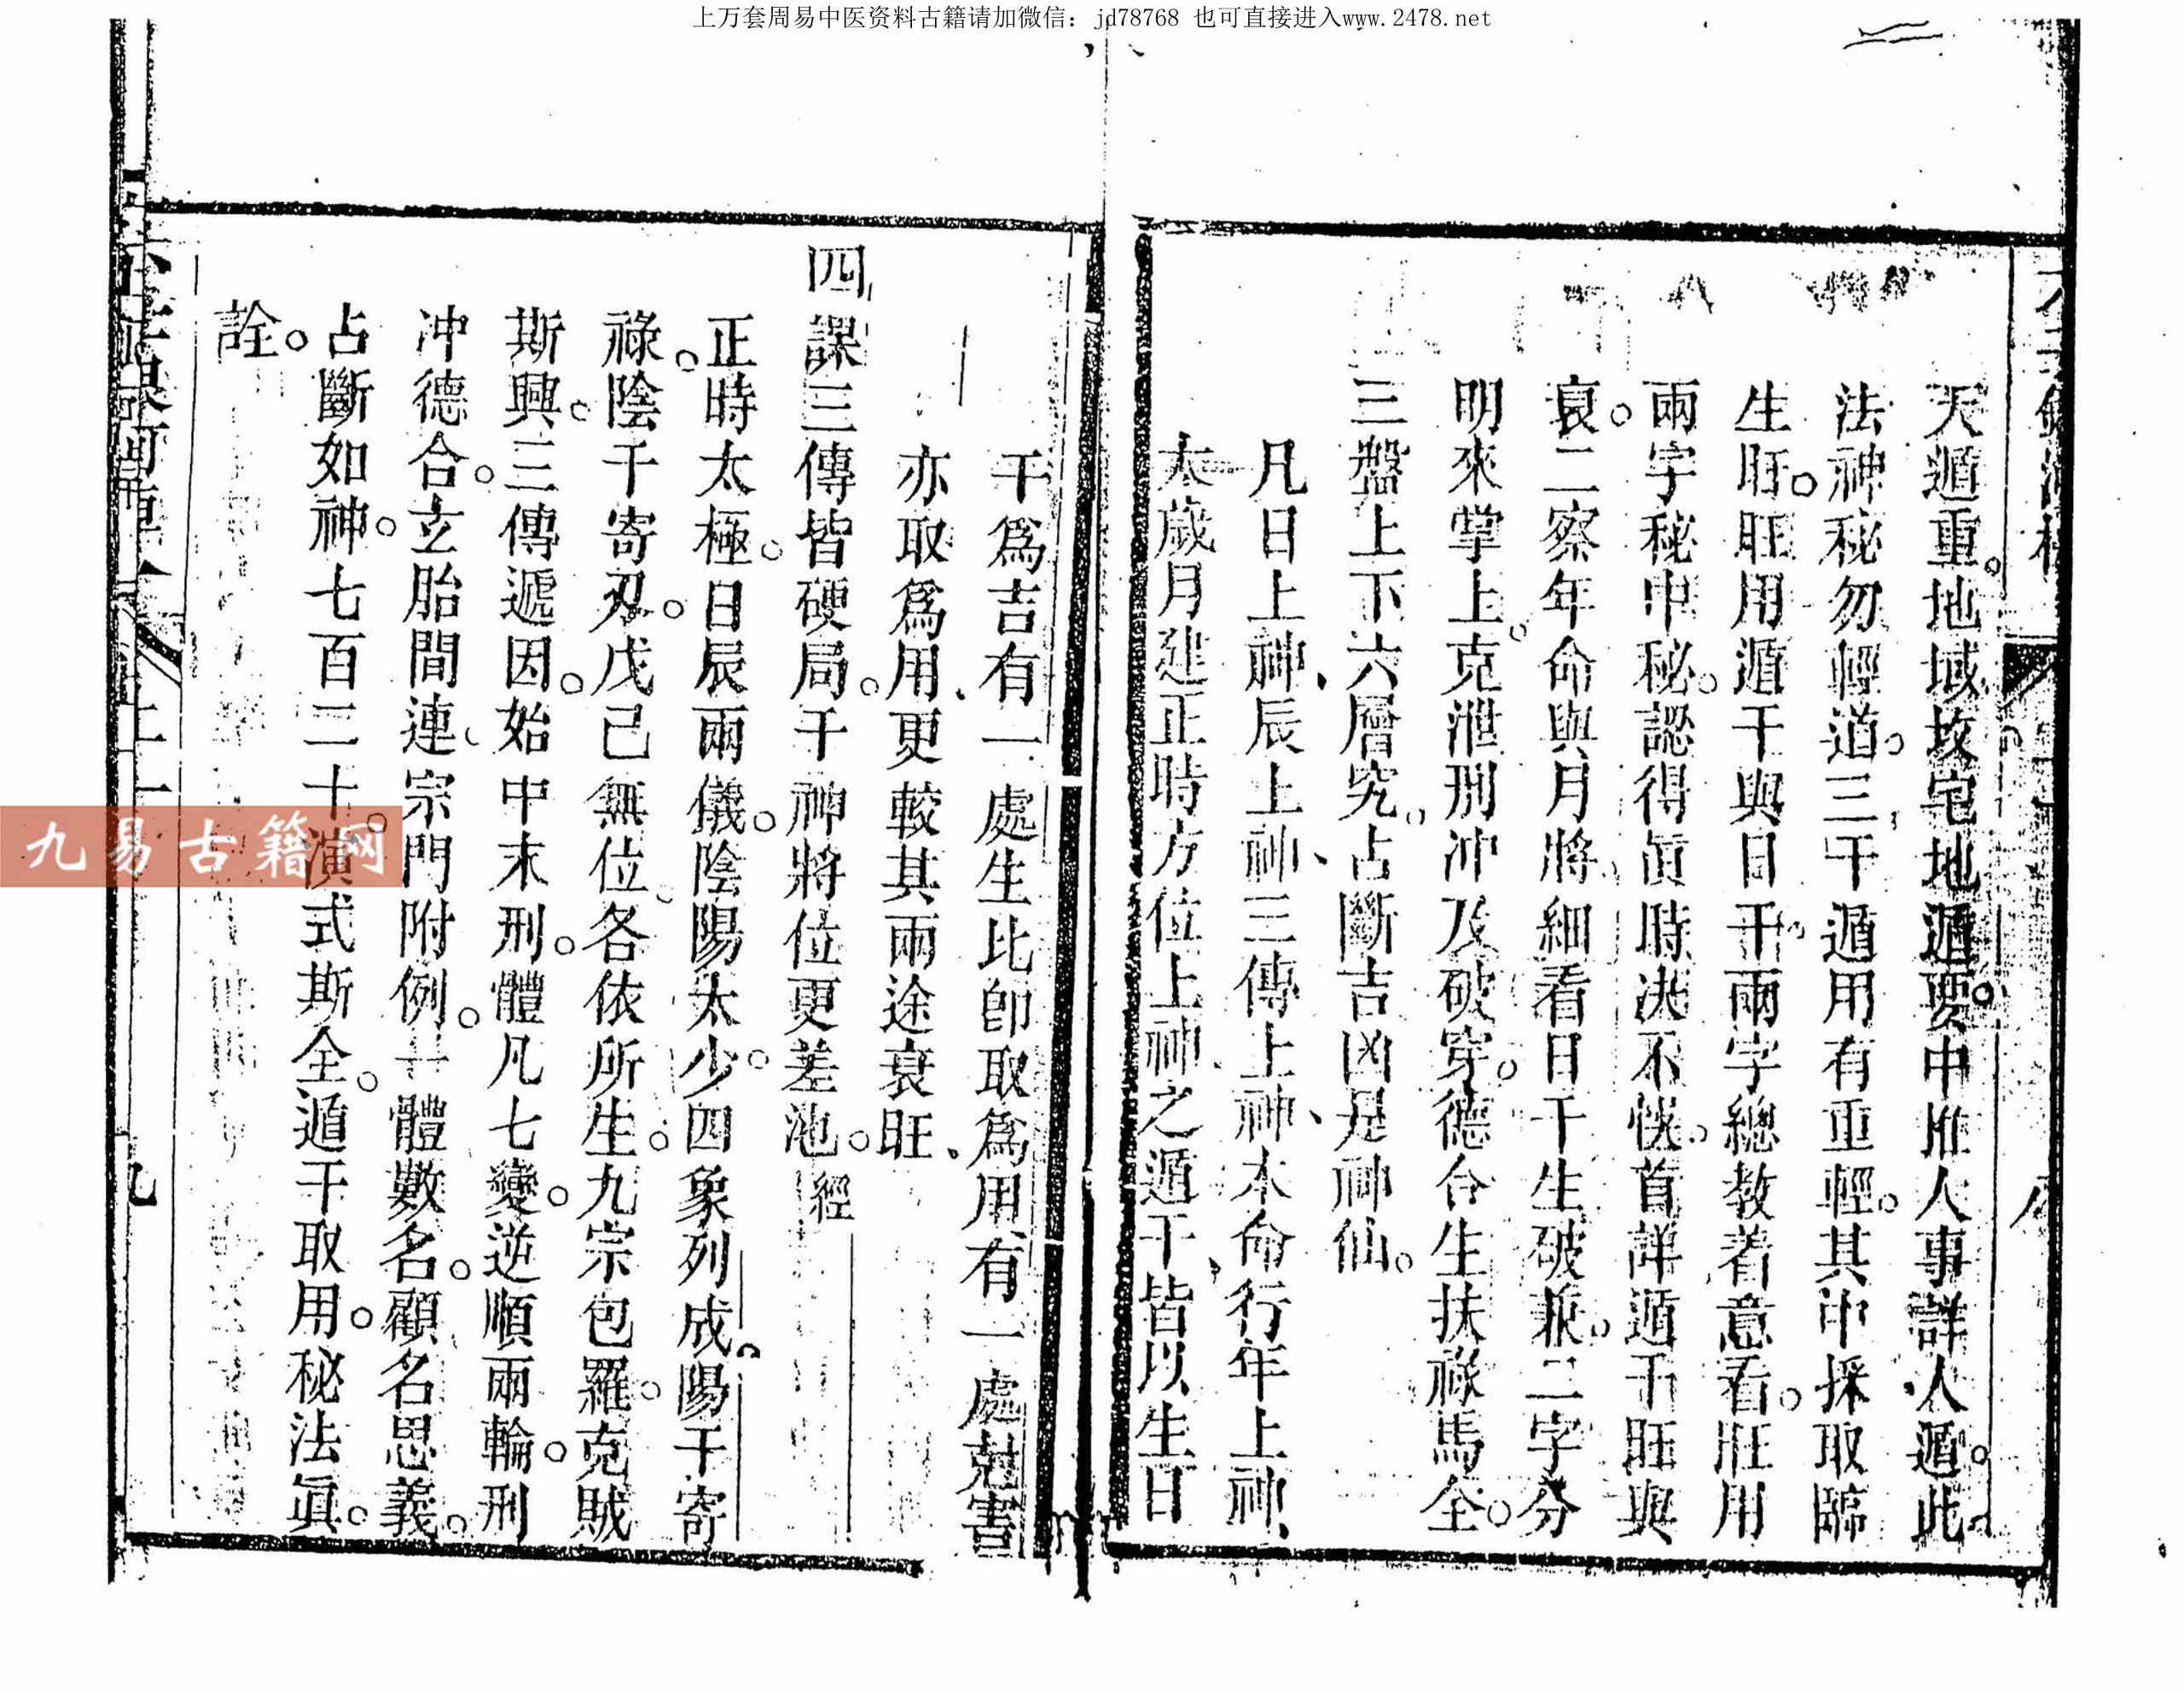 上万套周易中医资料古籍请加微信：jd78768 也可直接进入www.2478.net
天遁重。地域故宅地遁要。中推人事詳人遁。此
法神秘勿輕道。三干遁用有重輕。其中採取臨
生旺。旺用遁干與日干。兩字總教着意看。旺用
兩字秘中秘。認得眞時決不恍。首詳遁干旺與
衰。二察年命與月將。細看日干生破兼。二字分
明來掌上。克泄刑冲及破穿。德合生扶祿馬全。
三盤上下六層究。占斷吉凶是神仙。
凡日上神、辰上神、三傳上神、本命行年上神、
太歲月建正時方位上神之遁干、皆以生日
干爲吉有一處生此卽取爲用、有一處尅書
亦取爲用、更較其兩途衰旺、
四課三傳皆硬局。千神將位更差池。經
正時太極。日辰兩儀。陰陽太少。四象列成。陽干寄
祿。陰干寄刃。戊己無位。各依所生。九宗包羅。克賊
斯興。三傳遞因。始中末刑。體凡七變。逆順兩輪。刑
冲德合。玄胎間連。宗門附例。一體數名。顧名思義。
占斷如神。七百二十。演式斯全。遁干取用。秘法眞。
詮。
九
九易古籍网